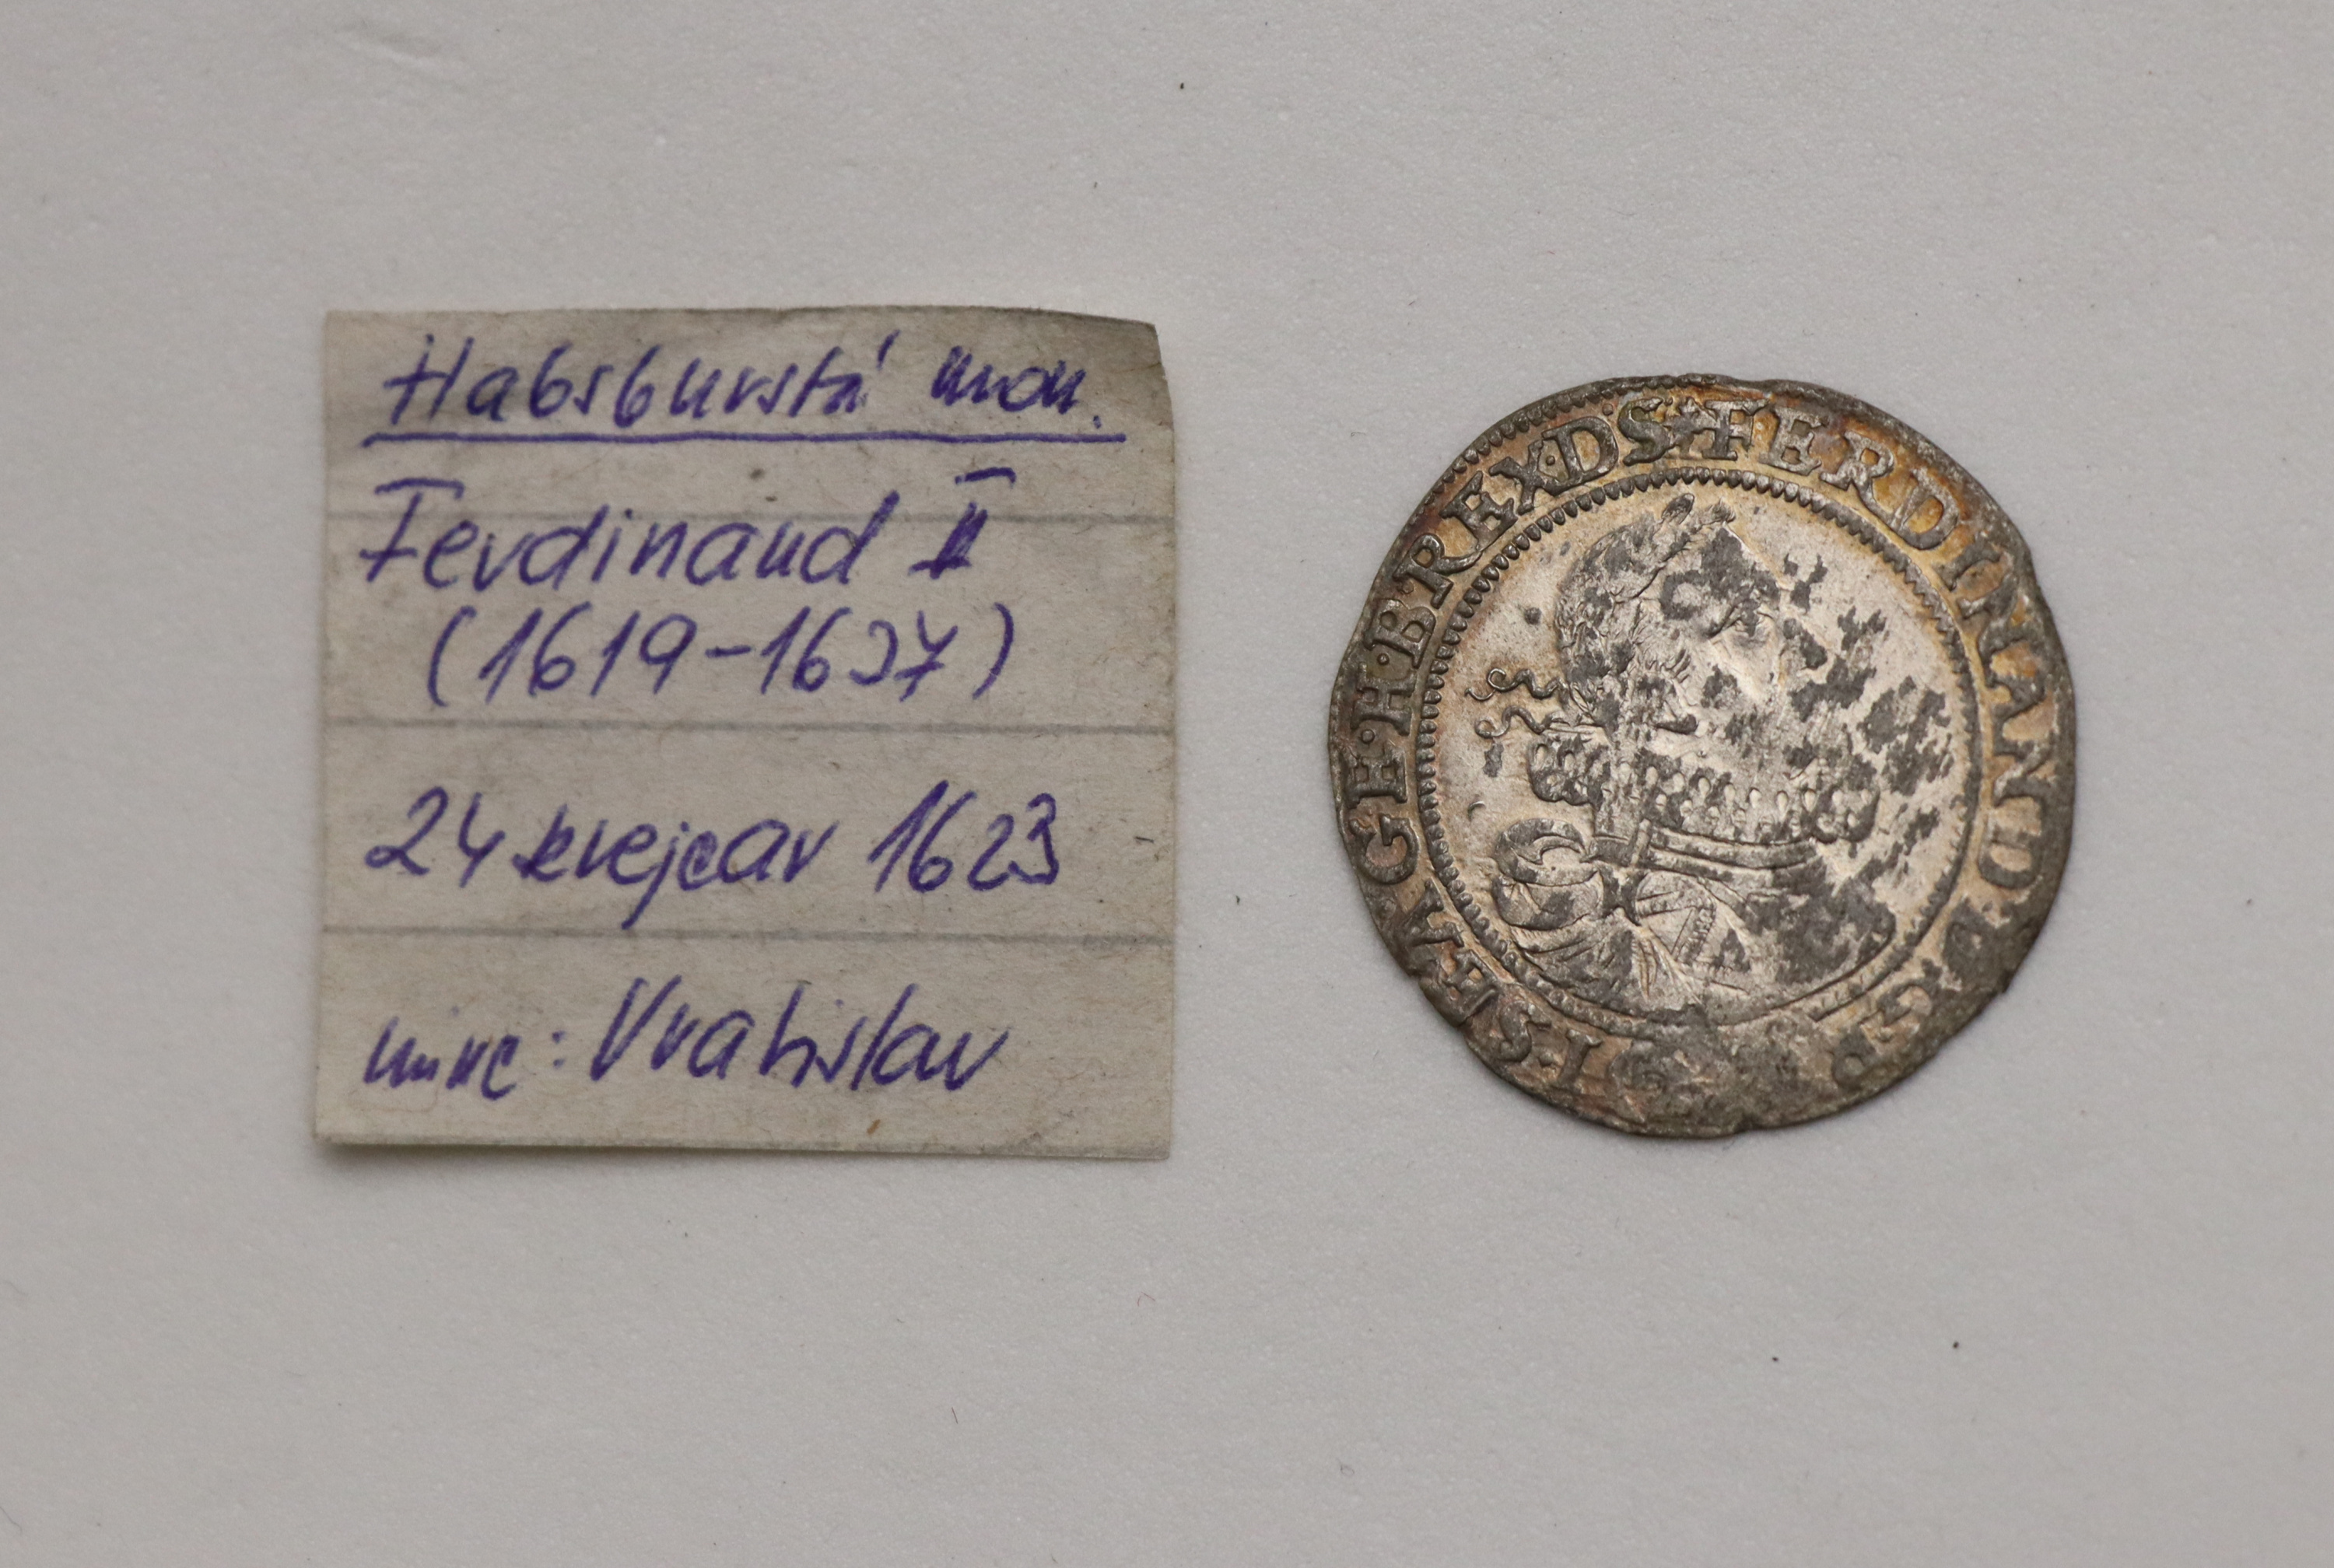 Habsburská mon.
Ferdinand II
(1619-1637)
24 krejcar 1623
minc: Vratislav
FERDINAND·D·G·R·I·S·A·GE·H·B·REX·DS